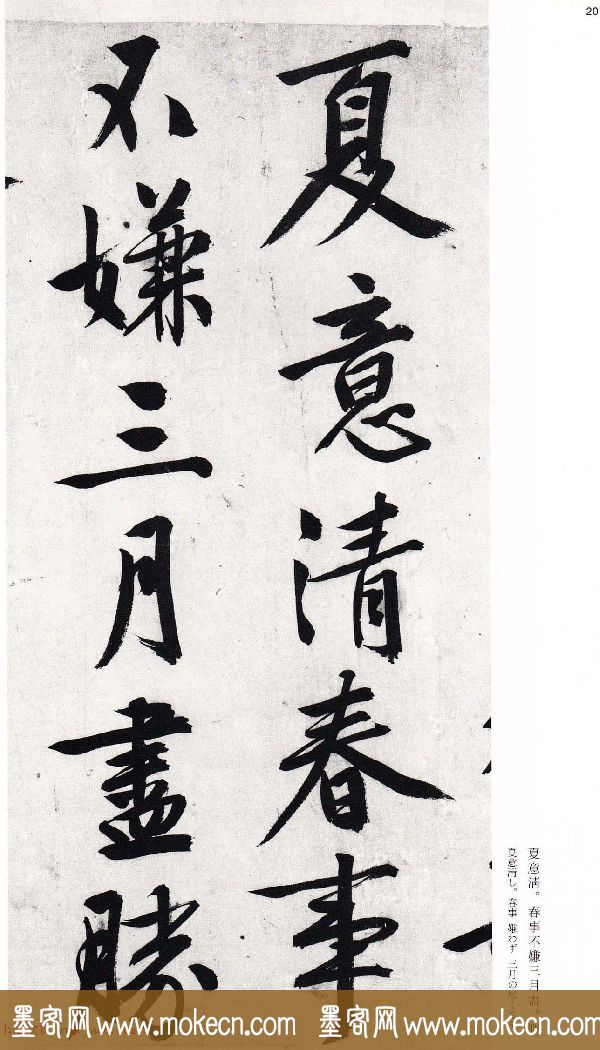 20
夏意清春事
不嫌三月盡勝
夏意淸。春事不嫌三月盡。
夏意清し。春事 嫌わず 三月の
墨客网 www.mokecn.com 墨客网 www.mokecn.com